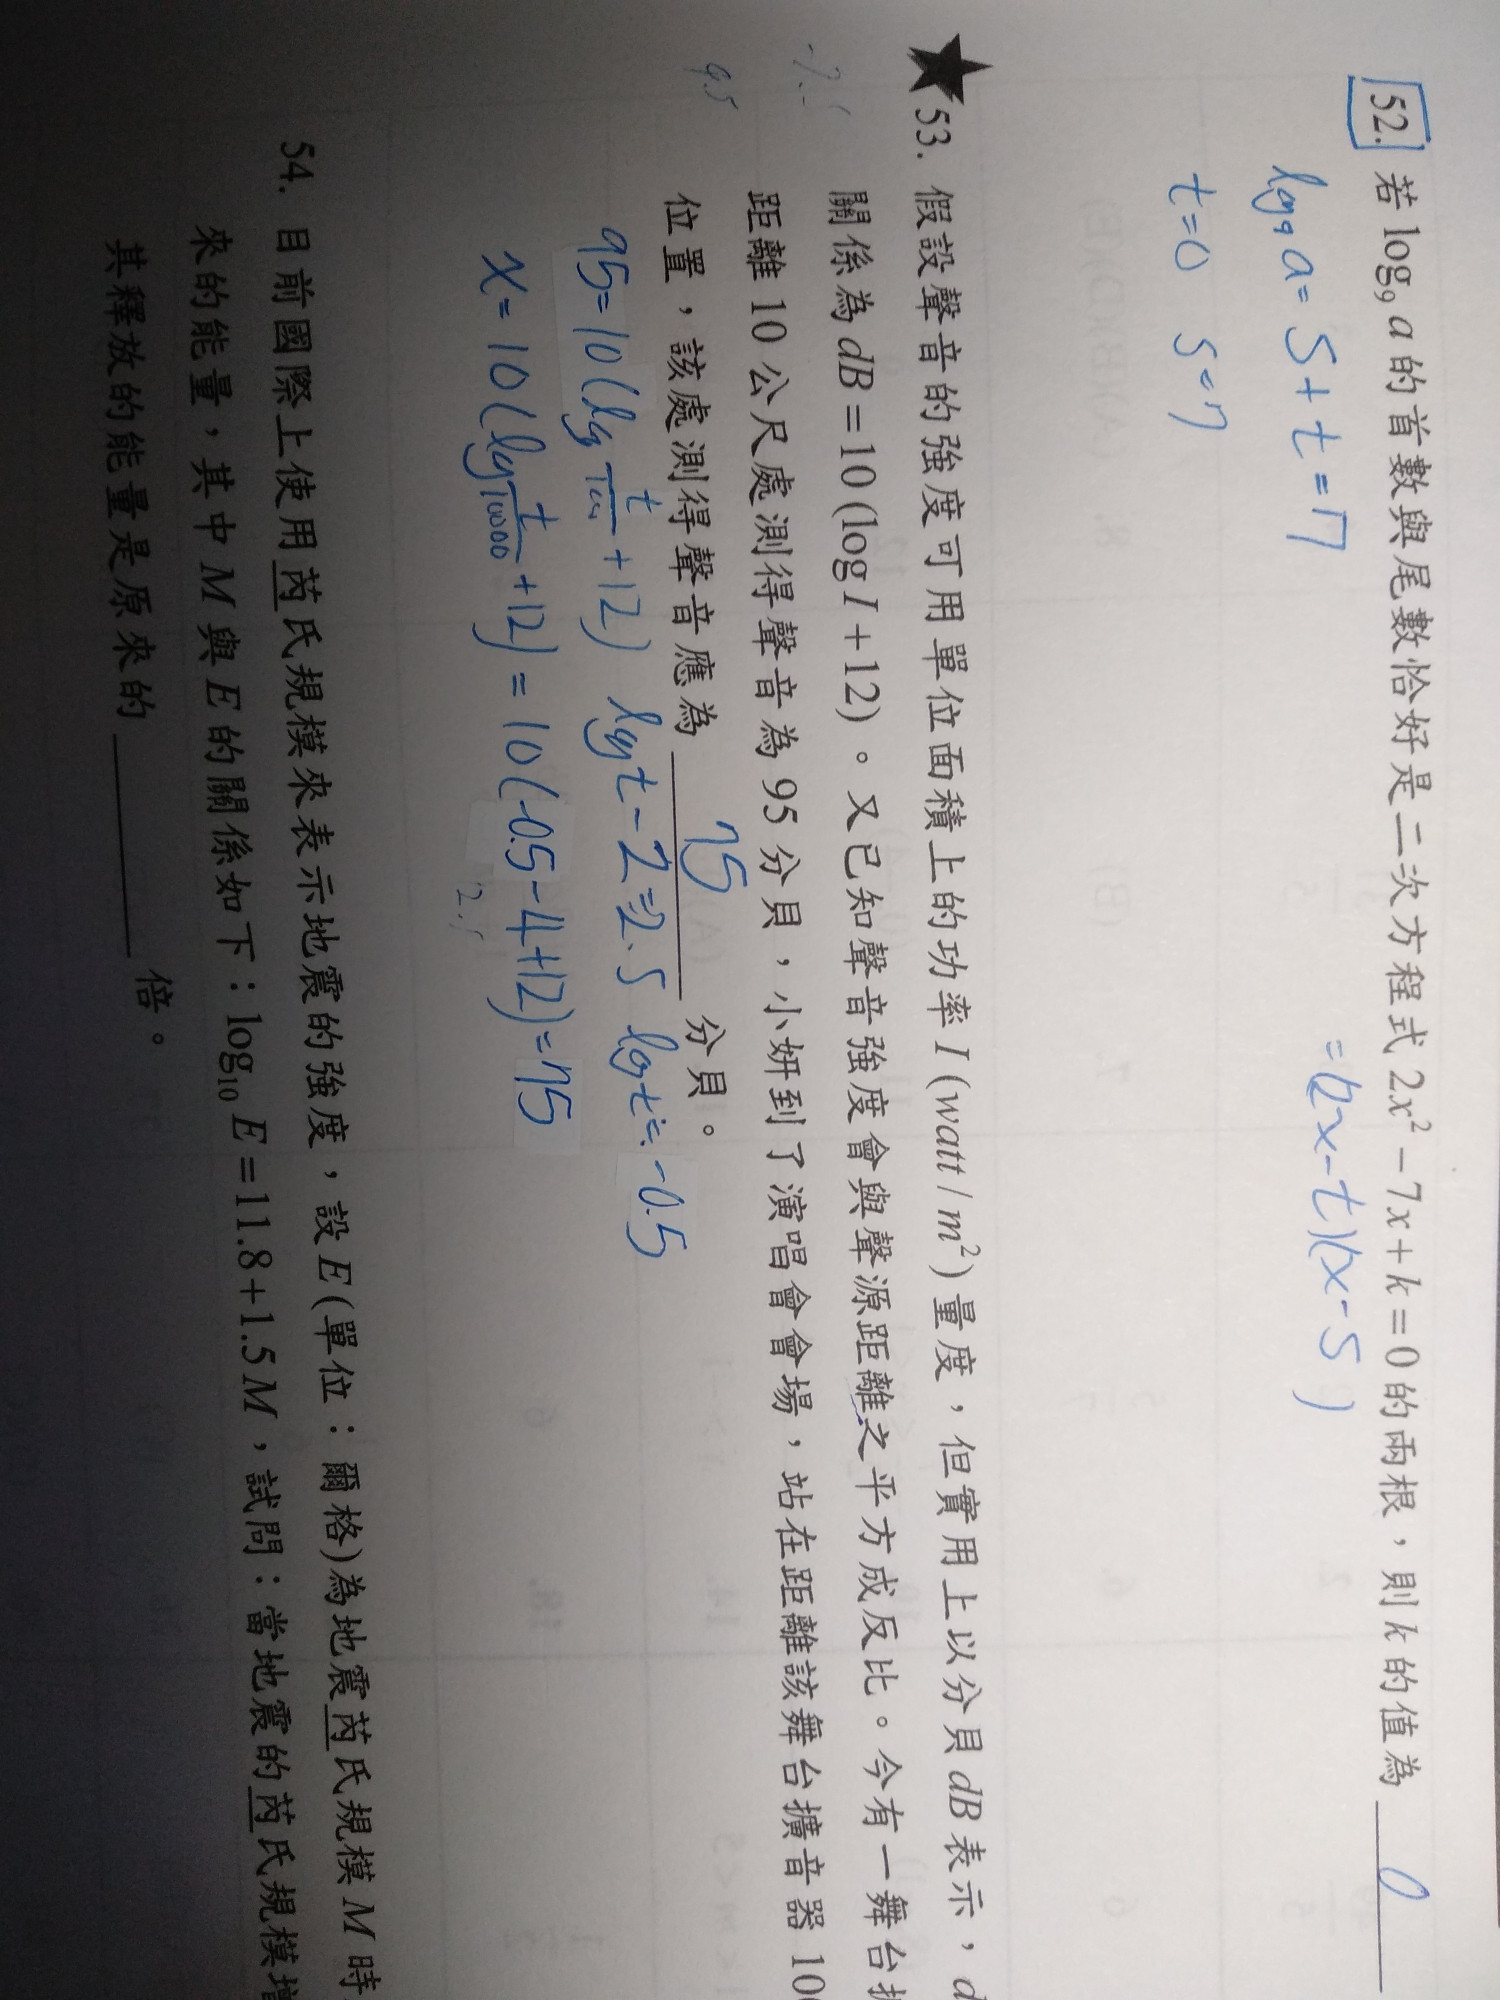 52. 若 log₉ a 的首數與尾數恰好是二次方程式 2x² − 7x + k = 0 的兩根，則 k 的值為 0
= (2x-t)(x-s)
log₉ a = s + t = 7
t=0 s=7
★ 53. 假設聲音的強度可用單位面積上的功率 I (watt / m²) 量度，但實用上以分貝 dB 表示，d
關係為 dB = 10 (log I + 12)。又已知聲音強度會與聲源距離之平方成反比。今有一舞台
距離 10 公尺處測得聲音為 95 分貝，小妍到了演唱會會場，站在距離該舞台擴音器 100
位置，該處測得聲音應為 75 分貝。
9.5
95=10(log t/100 +12) log t - 2 = -2.5 log t = -0.5
x = 10(log t/10000 +12) = 10(-0.5-4+12) = 75
54. 目前國際上使用芮氏規模來表示地震的強度，設 E (單位：爾格) 為地震芮氏規模 M 時
來的能量，其中 M 與 E 的關係如下：log₁₀ E = 11.8 + 1.5 M，試問：當地震的芮氏規模增
其釋放的能量是原來的 ______ 倍。